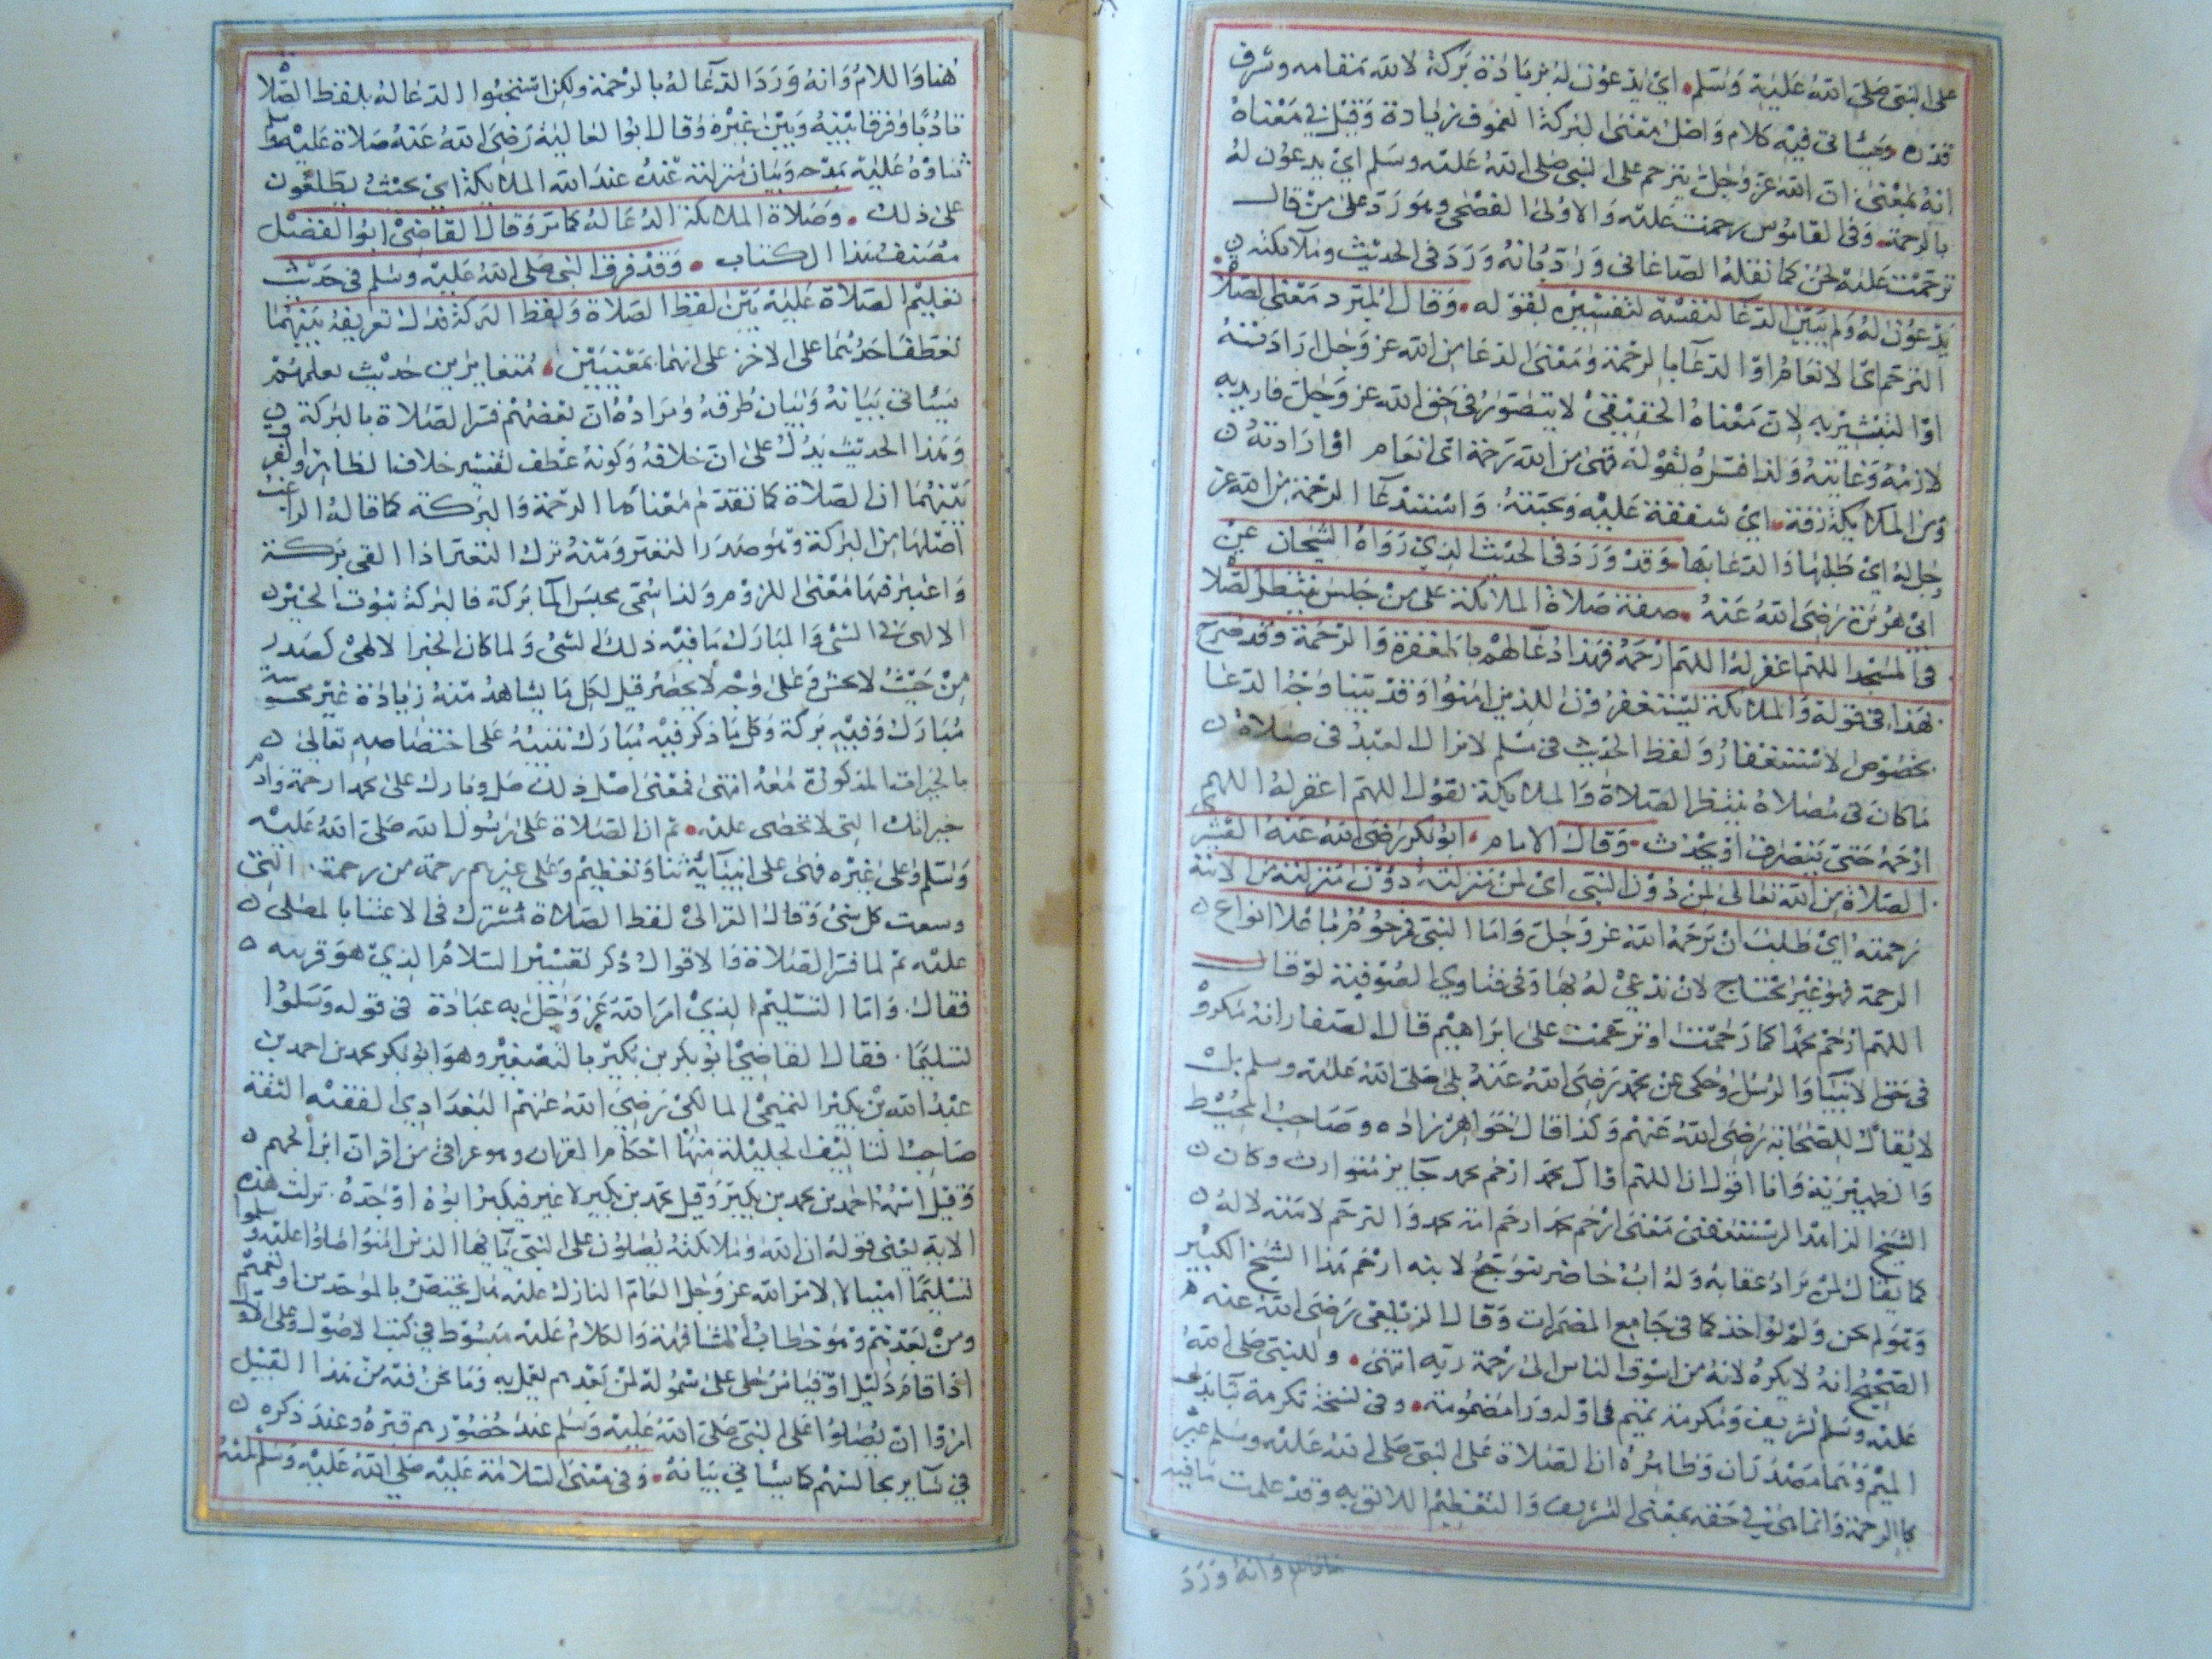 على النبى صلى الله عليه وسلم اى يدعون له بزيادة بركة لائقة بمقامه وشرف
قدره وسيأتى فيه كلام واصل معنى البركة النمو فى زيادة وقيل فى معناه
انه بمعنى ان الله عز وجل يترحم على النبى صلى الله عليه وسلم اى يدعون له
بالرحمة وفى القاموس رحمت عليه والاولى الفصحى وهو رد على من قال
ترحمت عليه لحن كما نقله الصاغانى ورد بانه ورد فى الحديث وملائكته
يدعون له ولم يبين الدعا لنفسه لتفسيره بقوله وقال المبرد معنى الصلاة
الترحم اى الانعام او الدعا بالرحمة ومعنى الدعا من الله عز وجل ارادته
او التبشير به لان معناه الحقيقى لا يتصور فى حق الله عز وجل فاريد به
لازمه وغايته ولذا فسره بقوله فهى من الله رحمة اى انعام او ارادته
ومن الملايكة رقة اى شفقة عليه ومحبته واستدعا الرحمة من الله عز
وجل له اى طلبها والدعا بها وقد ورد فى الحديث الذى رواه الشيخان عن
ابى هريرة رضى الله عنه صفة صلاة الملائكة على من جلس ينتظر الصلا
فى المسجد اللهم اغفر له اللهم ارحمه فهذا دعا لهم بالمغفرة والرحمة وقد صرح
بهذا فى قوله والملائكة يستغفرون للذين امنوا وقد بينا وجه الدعا
بخصوص الاستغفار ولفظ الحديث فى مسلم لا يزال العبد فى صلاة
ما كان فى مصلاه ينتظر الصلاة والملايكة تقول اللهم اغفر له اللهم
ارحمه حتى ينصرف او يحدث وقال الامام ابو بكر رضى الله عنه القشير
الصلاة من الله تعالى لمن دون النبى اى لمن منزلته دون منزلته من الامة
رحمته اى طلب ان يرحمه الله عز وجل واما النبى فمرحوم باعلا انواع
الرحمة فهو غير محتاج لان ندعى له بها وفى فتاوى الصوفية لو قال
اللهم ارحم محمدا كما رحمت او ترحمت على ابراهيم قال الصفار انه مكروه
فى حق الانبيا والرسل وحكى عن محمد رضى الله عنه بلى صلى الله عليه وسلم بل
لا يقال للصحابة رضى الله عنهم وكذا قال خواهر زاده وصاحب المحيط
والظهيرية وانا اقول ان اللهم ارحم محمد جايز متوارث وكان
الشيخ الزاهد الرستغفنى معنى ارحم محمدا ارحم امة محمد والترحم لامته لا له
كما يقال لمن يراد عقابه وله اب حاضر يتوجع لابنه ارحم هذا الشيخ الكبير
وهو لم يجن ولم يواخذ كما فى جامع المضمرات وقال الزيلعى رضى الله عنه
الصحيح انه لا يكره لانه من اسوق الناس الى رحمة ربه انتهى وللنبى صلى الله
عليه وسلم تشريف ومكرمة بميم فى اوله ورا مضمومة وفى نسخة تكرمة بتا بدل
الميم وهما مصدران وظاهره ان الصلاة على النبى صلى الله عليه وسلم غير
الرحمة وانما هى فى حقه بمعنى التشريف والتعظيم اللائق به وقد علمت ما فيه
وانه ورد
هنا واللام وانه ورد الدعا له بالرحمة ولكن استحبوا الدعا له بلفظ الصلا
تادبا وفرقا بينه وبين غيره وقال ابو العالية رضى الله عنه صلاة عليه
ثناوه عليه بمدحه وبيان منزلته عنده عند الله الملايكة اى بحيث يطلعون
على ذلك وصلاة الملائكة الدعا له كما مر وقال القاضى ابو الفضل
مصنف هذا الكتاب وقد فرق النبى صلى الله عليه وسلم فى حديث
تعليم الصلاة عليه بين لفظ الصلاة ولفظ البركة فدل تفريقه بينهما
بعطف احدهما على الاخر على انهما بمعنيين متغايرين حديث تعليمهم
سيأتى بيانه وبيان طرقه ومراده ان بعضهم فسر الصلاة بالبركة
وهذا الحديث يدل على ان خلافه وكونه عطف تفسير خلاف الظاهر والفرق
بينهما ان الصلاة كما تقدم معناها الرحمة والبركة كما قاله الراغب
اصلها من البركة وهو صدر البعير ومنه برك البعير اذا القى بركه
واعتبر فيها معنى اللزوم ولذا سمى محبس الما بركة فالبركة ثبوت الخير
الالهى فى الشى والمبارك ما فيه ذلك الشى ولما كان الخير الالهى يصدر
من حيث لا يحس وعلى وجه لا يحصر قيل لكل ما يشاهد منه زيادة غير محسوسة
مبارك وفيه بركة وكل ما ذكر فيه مبارك تنبيه على اختصاصه تعالى
بالخيرات المذكورة معه انتهى فمعنى اصل ذلك صل وبارك على محمد ارحمه وادم
خيراتك التى لا تحصى عليه ثم ان الصلاة على رسول الله صلى الله عليه
وسلم وعلى غيره فهى على انبيائه ثنا وتعظيم وعلى غيرهم رحمة من رحمة التى
وسعت كل شى وقال الغزالى لفظ الصلاة مشترك فى الاعتنا بالمصلى
عليه ثم لما فسر الصلاة فالاقوال ذكر تفسير السلام الذى هو قرينه
فقال واما التسليم الذى امر الله عز وجل به عباده فى قوله وسلموا
تسليما فقال القاضى ابو بكر بن بكير بالتصغير وهو ابو بكر محمد بن احمد بن
عبد الله بن بكير التميمى المالكى رضى الله عنهم البغدادى الفقيه الثقة
صاحب التاليف الجليلة منها احكام القران وهو عراقى من اقران ابن الجهم
وقيل انه احمد بن محمد بن بكير وقيل محمد بن بكير لا غير فبكير ابوه او جده نزلت هذه
الاية يعنى قوله ان الله وملائكته يصلون على النبى يا ايها الذين امنوا صلوا عليه وسلموا
تسليما امتثالا لامر الله عز وجل العام النازل عليه هل يختص بالموجدين او يعمهم
ومن بعدهم وهو خطاب المشافهة والكلام عليه مبسوط فى كتب الاصول
اذا قام دليل او قياس جلى على شموله لمن بعدهم يعمل به وما نحن فيه من هذا القبيل
امروا ان يصلوا على النبى صلى الله عليه وسلم عند حضورهم قبره وعند ذكره
فى ساير مجالسهم كما سيأتى بيانه وفى معنى السلامة عليه صلى الله عليه وسلم